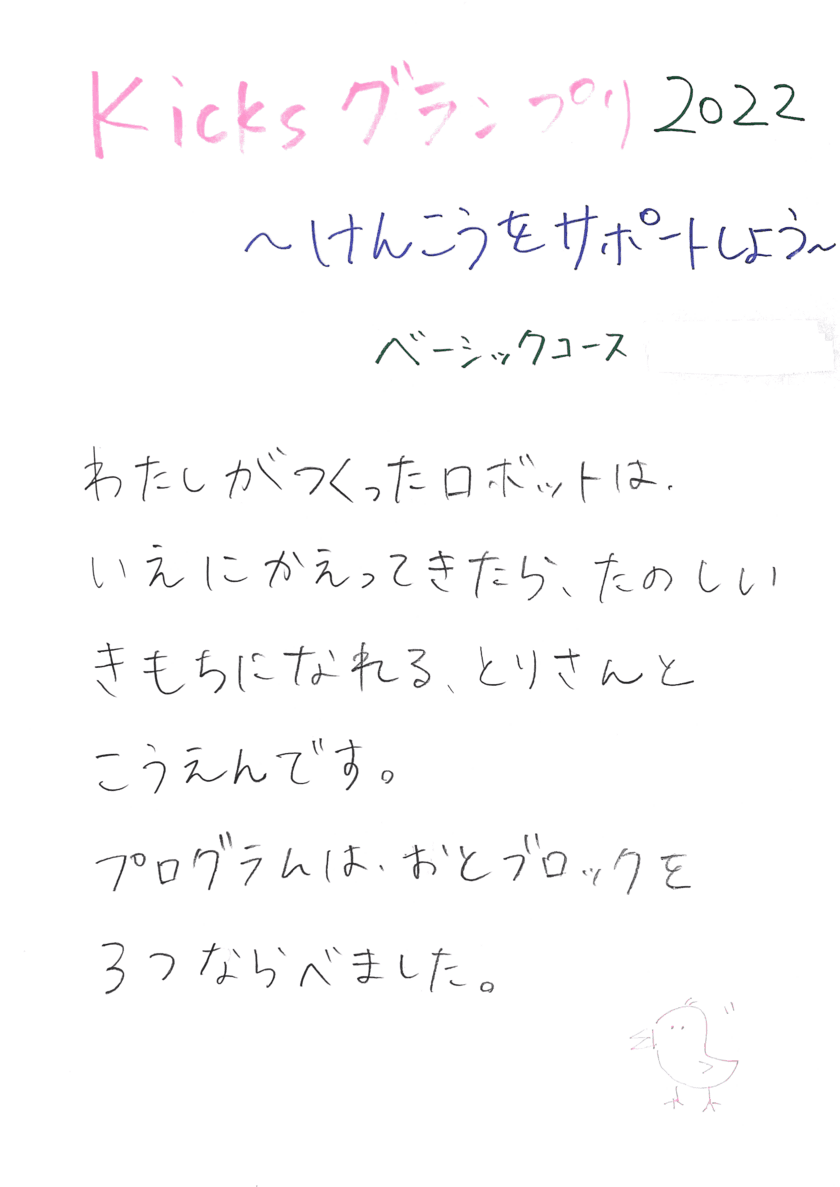 Kicksグランプリ2022
～けんこうをサポートしよう～
ベーシックコース
わたしがつくったロボットは、
いえにかえってきたら、たのしい
きもちになれる、とりさんと
こうえんです。
プログラムは、おとブロックを
3つならべました。